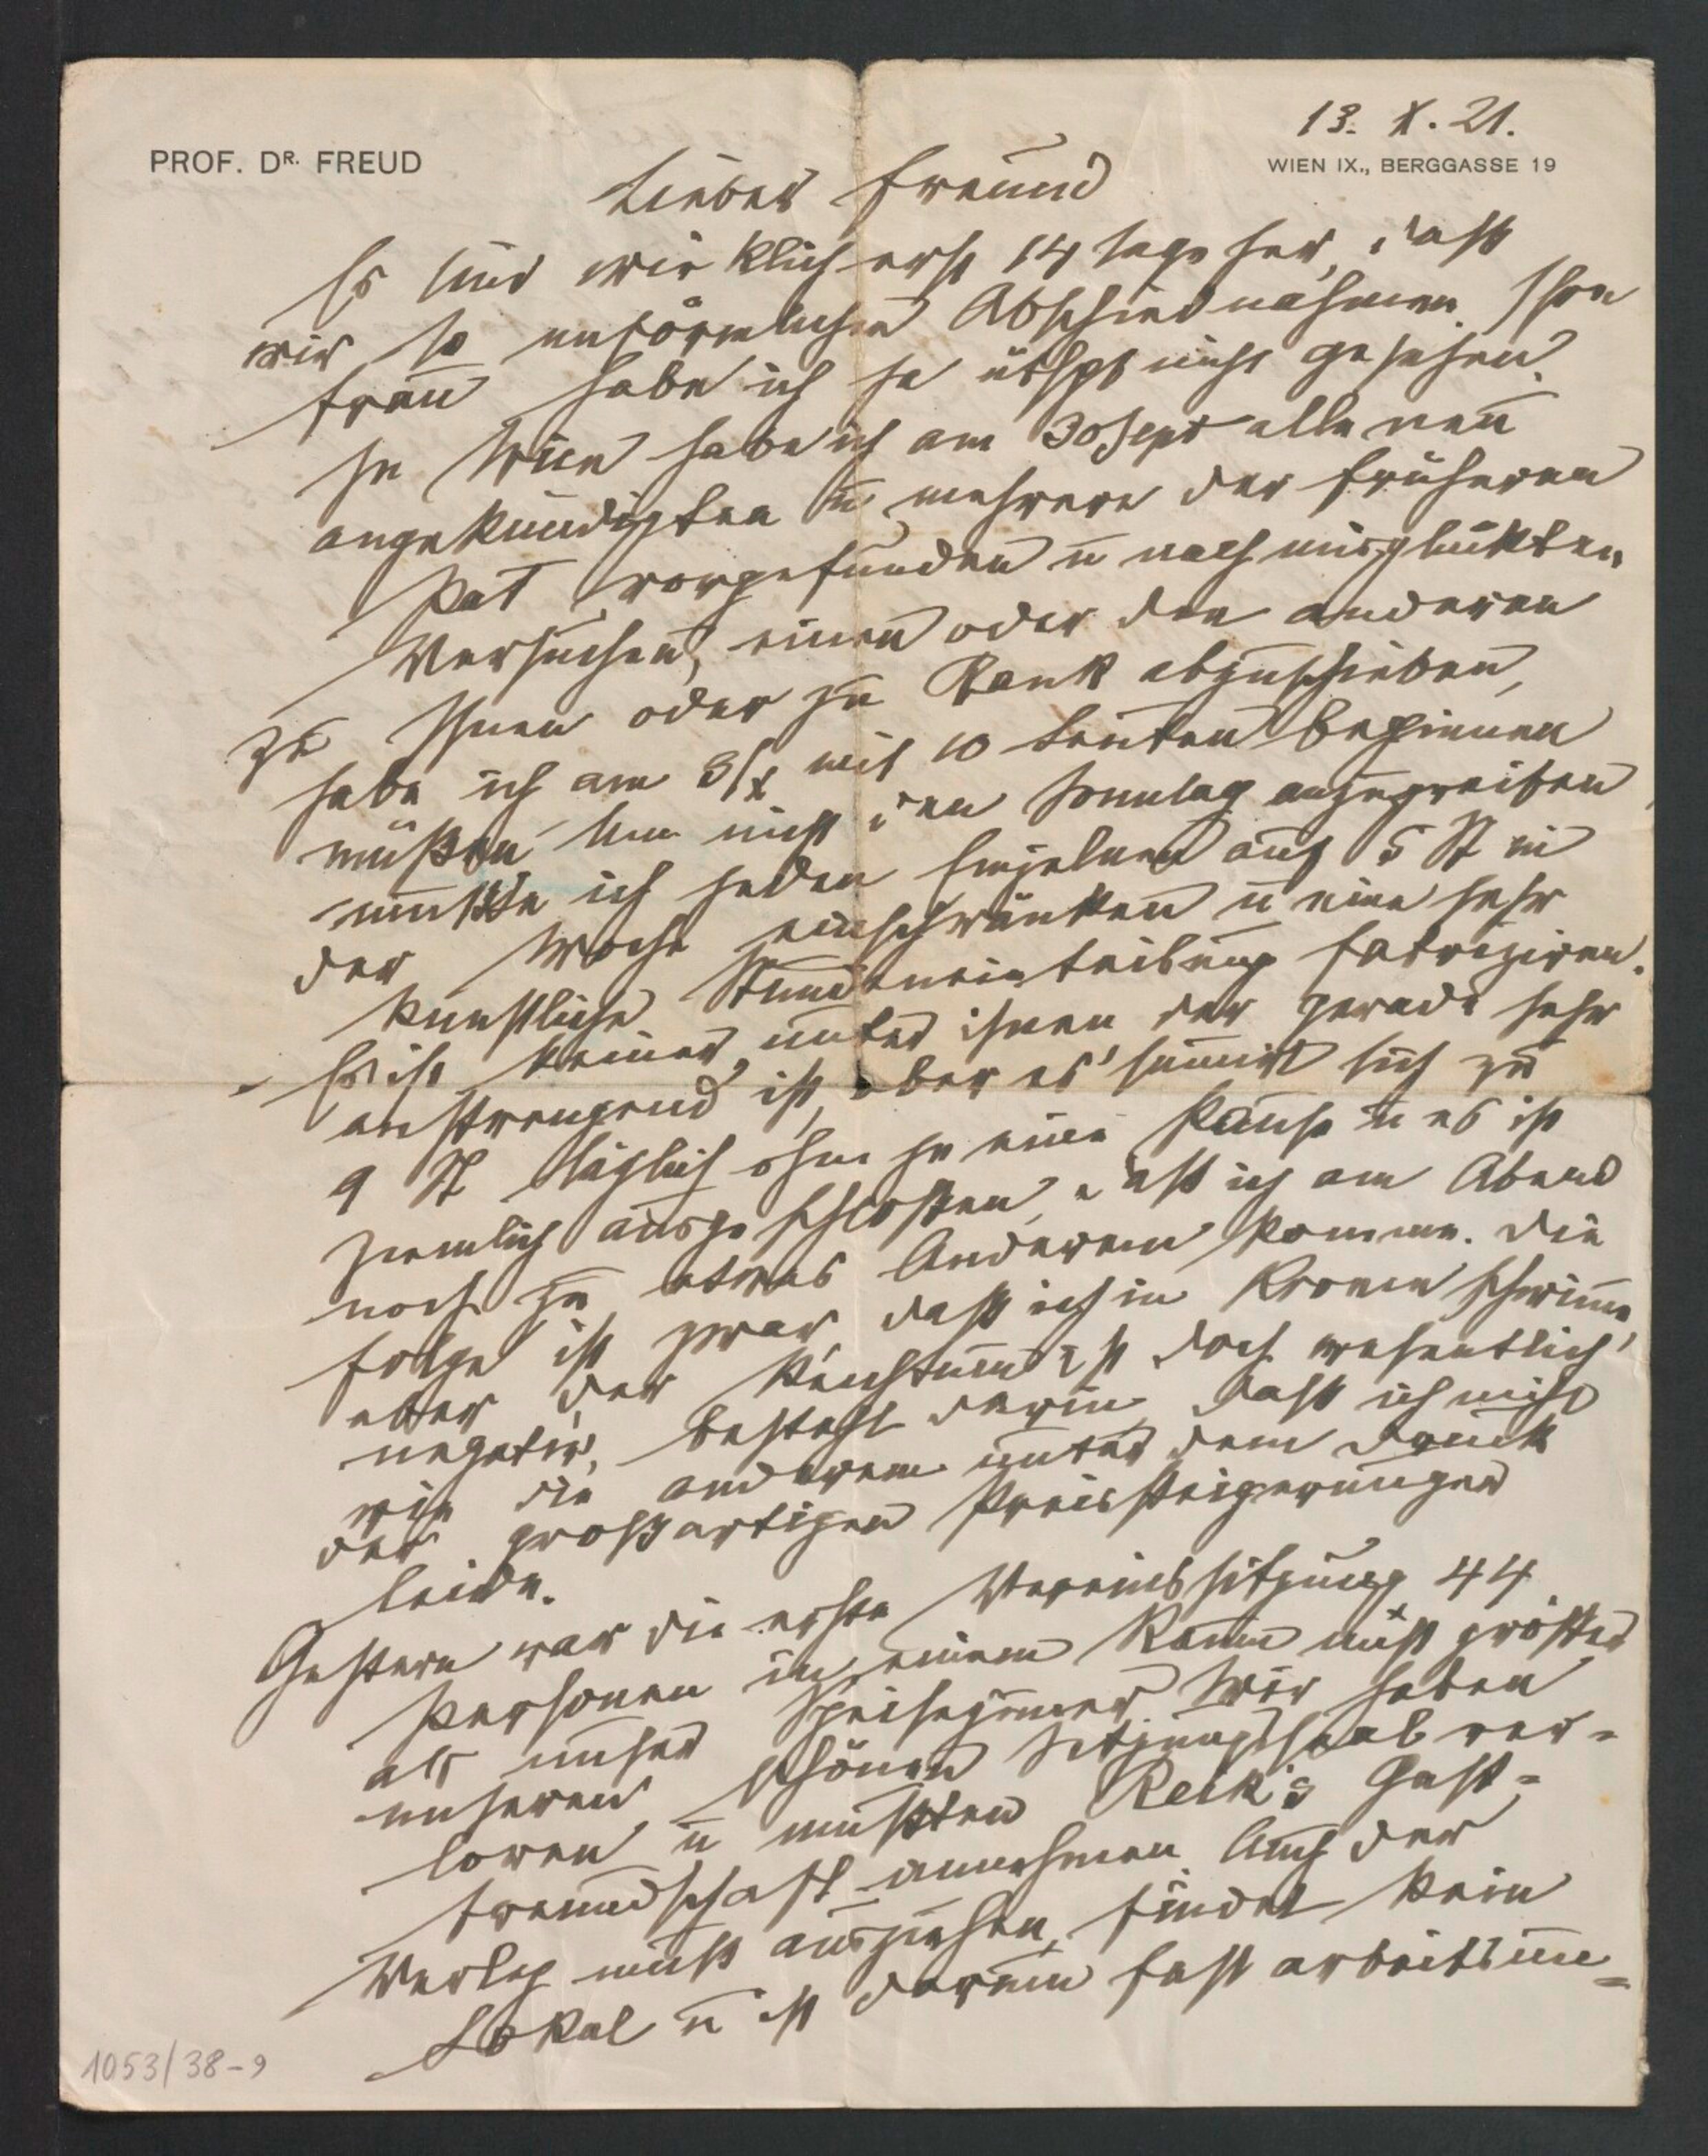 13. X. 21.
PROF. DR. FREUD
WIEN IX., BERGGASSE 19
Lieber Freund
Es sind wirklich erst 14 Tage her, daß
wir so unförmlichen Abschied nahmen. Ihre
Frau habe ich ja übhpt nicht gesehen.
In Wien habe ich am 30 Sept alle neu
angekündigten u mehrere der früheren
Pat vorgefunden u nach mißglückten
Versuchen, einen oder den anderen
zu Ihnen oder zu Rank abzuschieben,
habe ich am 3/X mit 10 Leuten beginnen
müßen. Um nicht den Sonntag anzugreifen,
mußte ich jeden Einzelnen auf 5 St in
der Woche einschränken u eine sehr
künstliche Stundeneinteilung fabriziren.
Es ist keiner unter ihnen der gerade sehr
anstrengend ist, aber es summirt sich zu
9 St täglich ohne je eine Pause u es ist
ziemlich ausgeschloßen, daß ich am Abend
noch zu etwas Anderem komme. Die
Folge ist zwar, daß ich in Kronen schwimme,
aber der Reichtum ist doch wesentlich
negativ, besteht darin, daß ich nicht
wie die anderen unter dem Druck
der großartigen Preissteigerungen
leide.
Gestern war die erste Vereinssitzung 44
Personen in einem Raum nicht größer
als unser Speisezimmer. Wir haben
unseren schönen Sitzungssaal ver-
loren u mußten Reik's Gast-
freundschaft annehmen. Auch der
Verlag muß ausziehen, findet kein
Lokal u ist darum fast arbeitsun-
1053/38-9